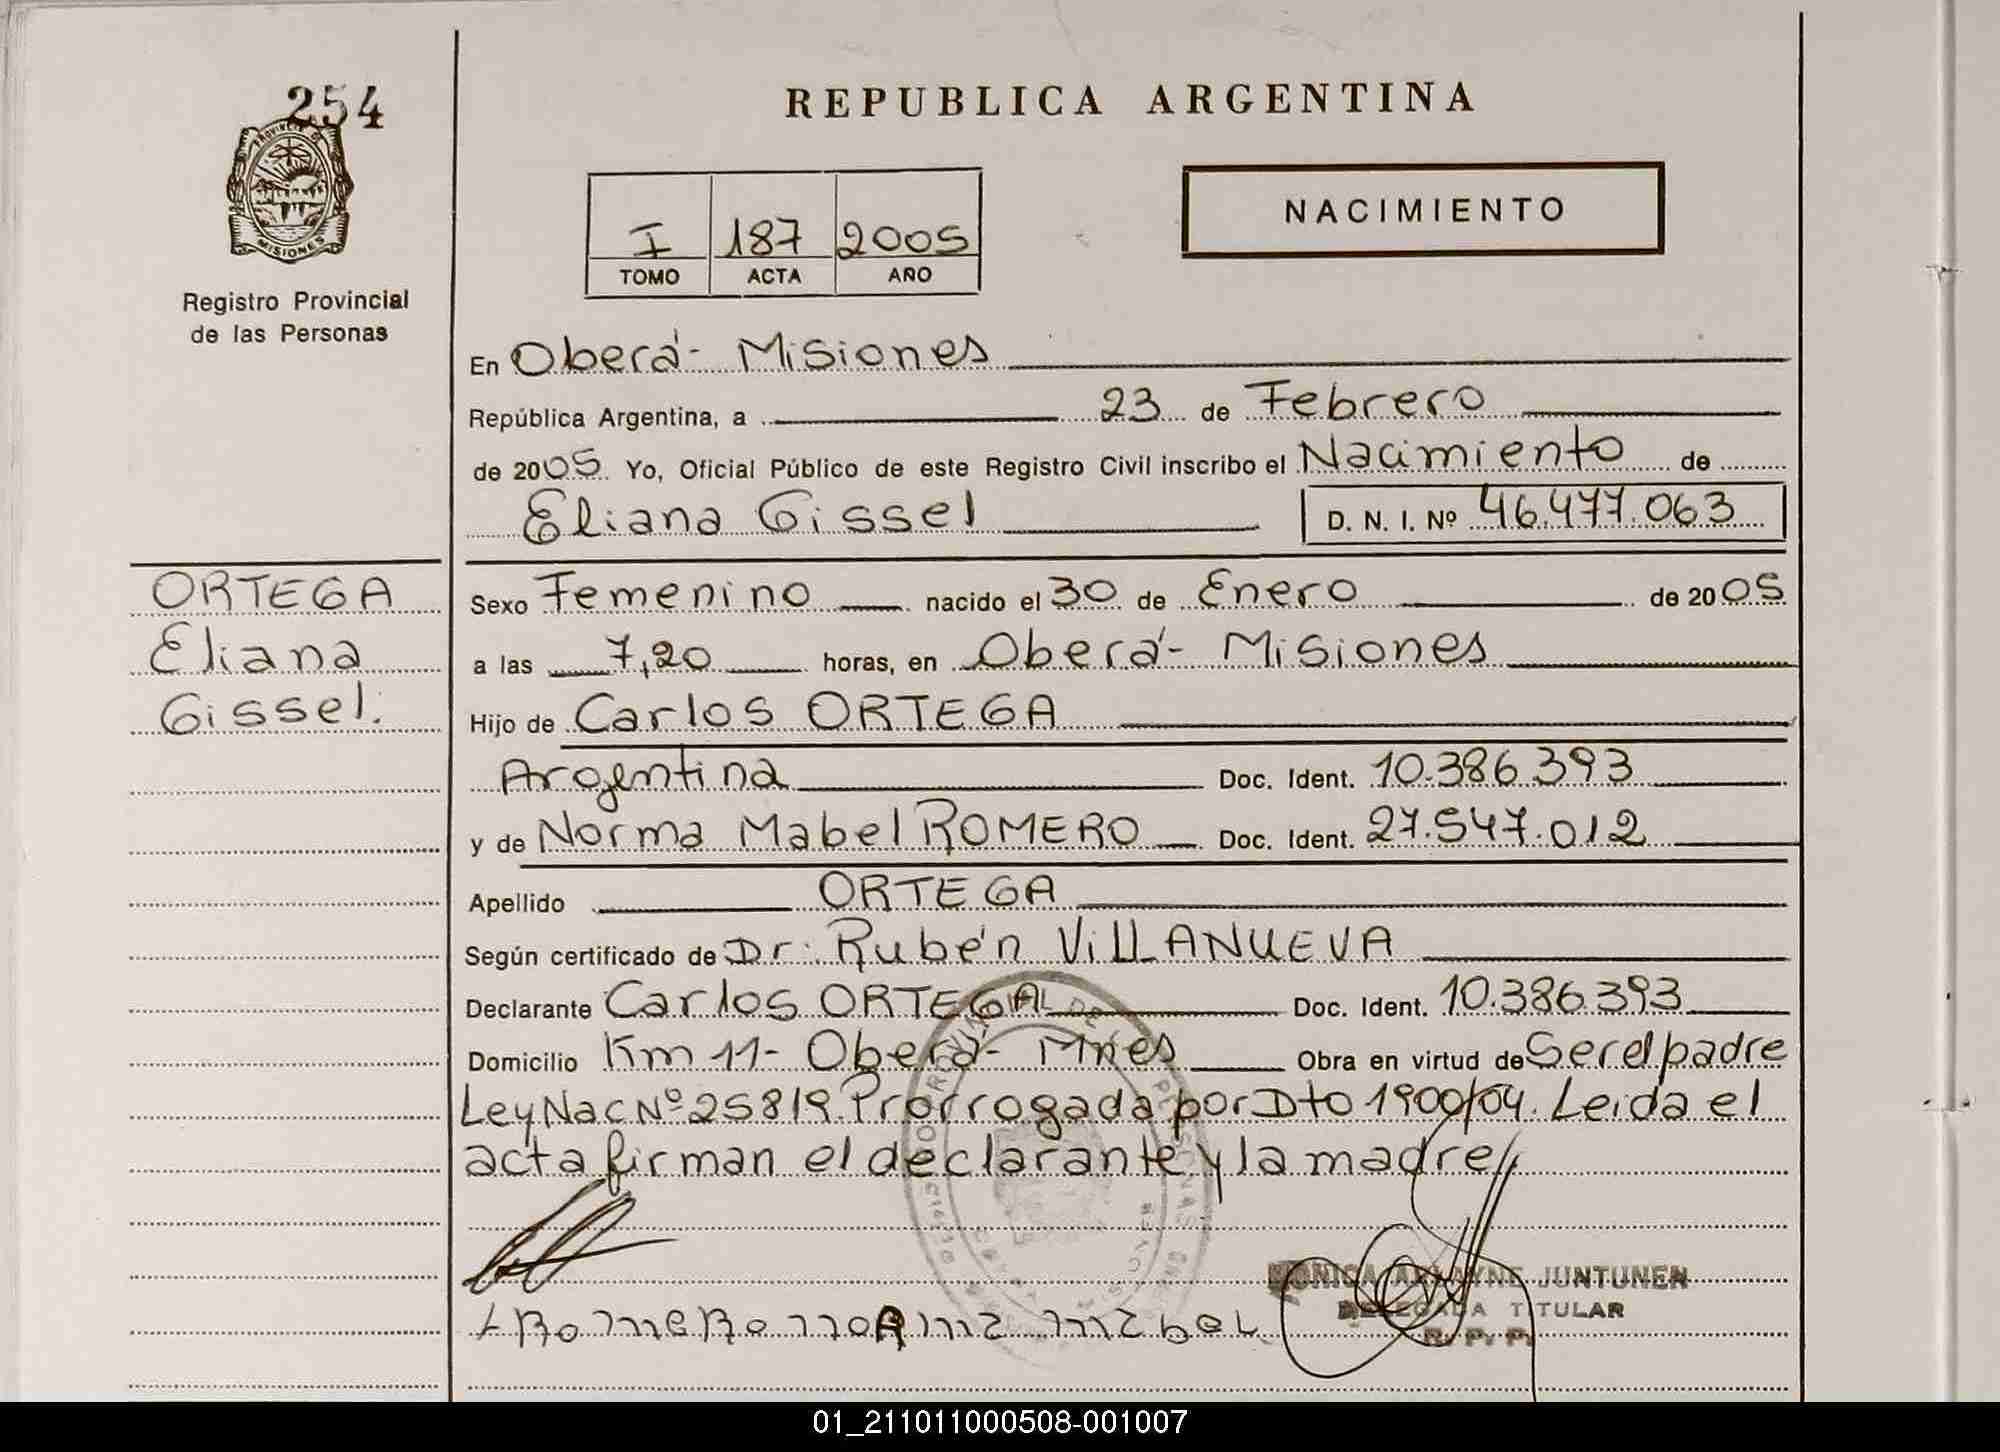 254
PROVINCIA DE
MISIONES
Registro Provincial
de las Personas
REPUBLICA ARGENTINA
I 187 2005
TOMO ACTA AÑO
NACIMIENTO
En Oberá- Misiones
República Argentina, a 23 de Febrero
de 2005. Yo, Oficial Público de este Registro Civil inscribo el Nacimiento de
Eliana Gissel D. N. I. Nº 46.477.063
ORTEGA
Eliana
Gissel.
Sexo Femenino nacido el 30 de Enero de 2005
a las 7,20 horas, en Oberá- Misiones
Hijo de Carlos ORTEGA
Argentina Doc. Ident. 10.386.393
y de Norma Mabel ROMERO Doc. Ident. 27.547.012
Apellido ORTEGA
Según certificado de Dr. Rubén VILLANUEVA
Declarante Carlos ORTEGA Doc. Ident. 10.386.393
Domicilio Km 11- Oberá- Mnes Obra en virtud de Ser el padre
Ley Nac Nº 25819. Prorrogada por Dto 1900/04. Leida el
acta firman el declarante y la madre
MONICA JUNTUNEN
DELEGADA TITULAR
R. P. P.
01_211011000508-001007